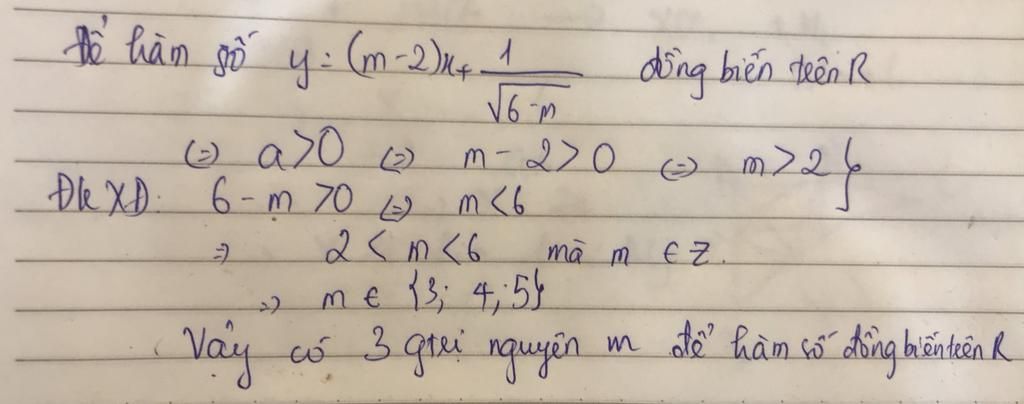 Để hàm số y = (m-2)x + 1/√(6-m) đồng biến trên R
(=) a>0 (=) m-2>0 (=) m>2 }
Đk XĐ: 6-m>0 (=) m<6
=) 2<m<6 mà m ∈ Z.
=) m ∈ {3; 4; 5}
Vậy có 3 gtrị nguyên m để hàm số đồng biến trên R